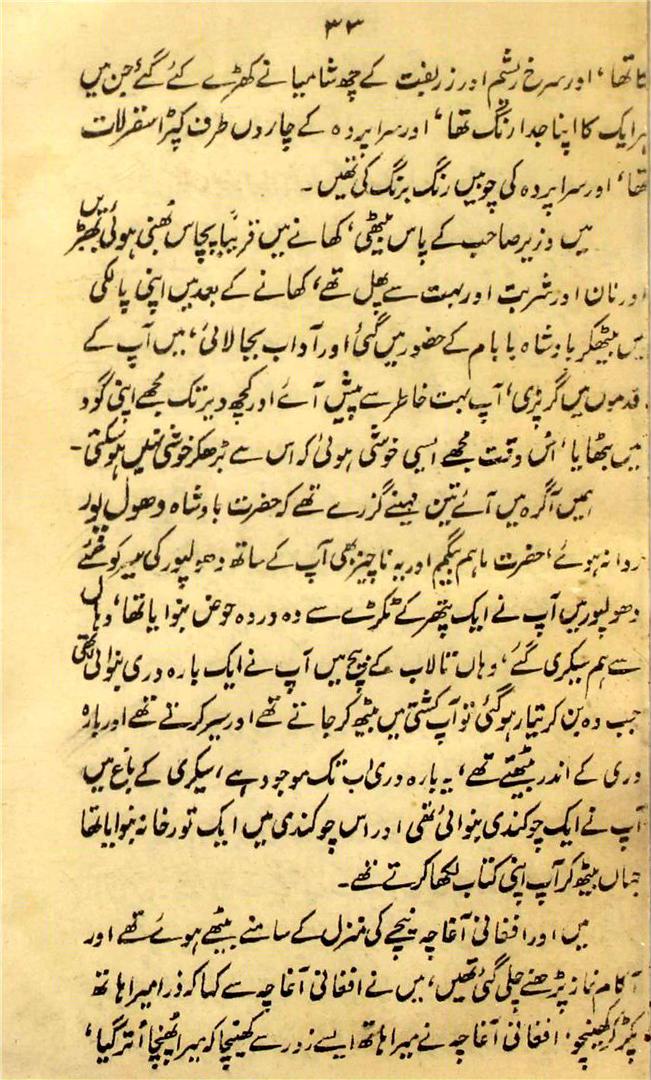 ۳۳
تھا، اور سرخ ریشم اور زربفت کے چھ شامیانے کھڑے کئے گئے جن میں
ہر ایک کا اپنا جدا رنگ تھا، اور سراپردہ کے چاروں طرف کپڑا سقرلات
تھا، اور سراپردہ کی چوبیں رنگ برنگ کی تھیں۔
میں وزیر صاحب کے پاس بیٹھی، کھانے میں قریباً پچاس بُھنی ہوئی بھیڑیں
اور نان اور شربت اور بہت سے پھل تھے، کھانے کے بعد میں اپنی پالکی
میں بیٹھکر بادشاہ بابام کے حضور میں گئی اور آداب بجا لائی، میں آپ کے
قدموں میں گر پڑی، آپ بہت خاطر سے پیش آئے اور کچھ دیر تک مجھے اپنی گود
میں بٹھایا، اس وقت مجھے ایسی خوشی ہوئی کہ اس سے بڑھکر خوشی نہیں ہوسکتی۔
ہمیں آگرہ میں آئے تین مہینے گزرے تھے کہ حضرت بادشاہ دھول پور
روانہ ہوئے، حضرت ماہم بیگم اور یہ ناچیز بھی آپ کے ساتھ دھولپور کی سیر کو گئے
دھولپور میں آپ نے ایک پتھر کے ٹکڑے سے دہ در دہ حوض بنوایا تھا، وہاں
سے ہم سیکری گئے، وہاں تالاب کے بیچ میں آپ نے ایک بارہ دری بنوائی تھی
جب وہ بن کر تیار ہوگئی تو آپ کشتی میں بیٹھ کر جاتے تھے اور سیر کرتے تھے اور بارہ
دری کے اندر بیٹھتے تھے، یہ بارہ دری اب تک موجود ہے، سیکری کے باغ میں
آپ نے ایک چوکندی بنوائی تھی اور اس چوکندی میں ایک تور خانہ بنوایا تھا
جہاں بیٹھ کر آپ اپنی کتاب لکھا کرتے تھے۔
میں اور افغانی آغاچہ نیچے کی منزل کے سامنے بیٹھے ہوئے تھے اور
آکام نماز پڑھنے چلی گئی تھیں، میں نے افغانی آغاچہ سے کہا کہ ذرا میرا ہاتھ
پکڑ کر کھینچو۔ افغانی آغاچہ نے میرا ہاتھ ایسے زور سے کھینچا کہ میرا پُہنچا اُتر گیا،